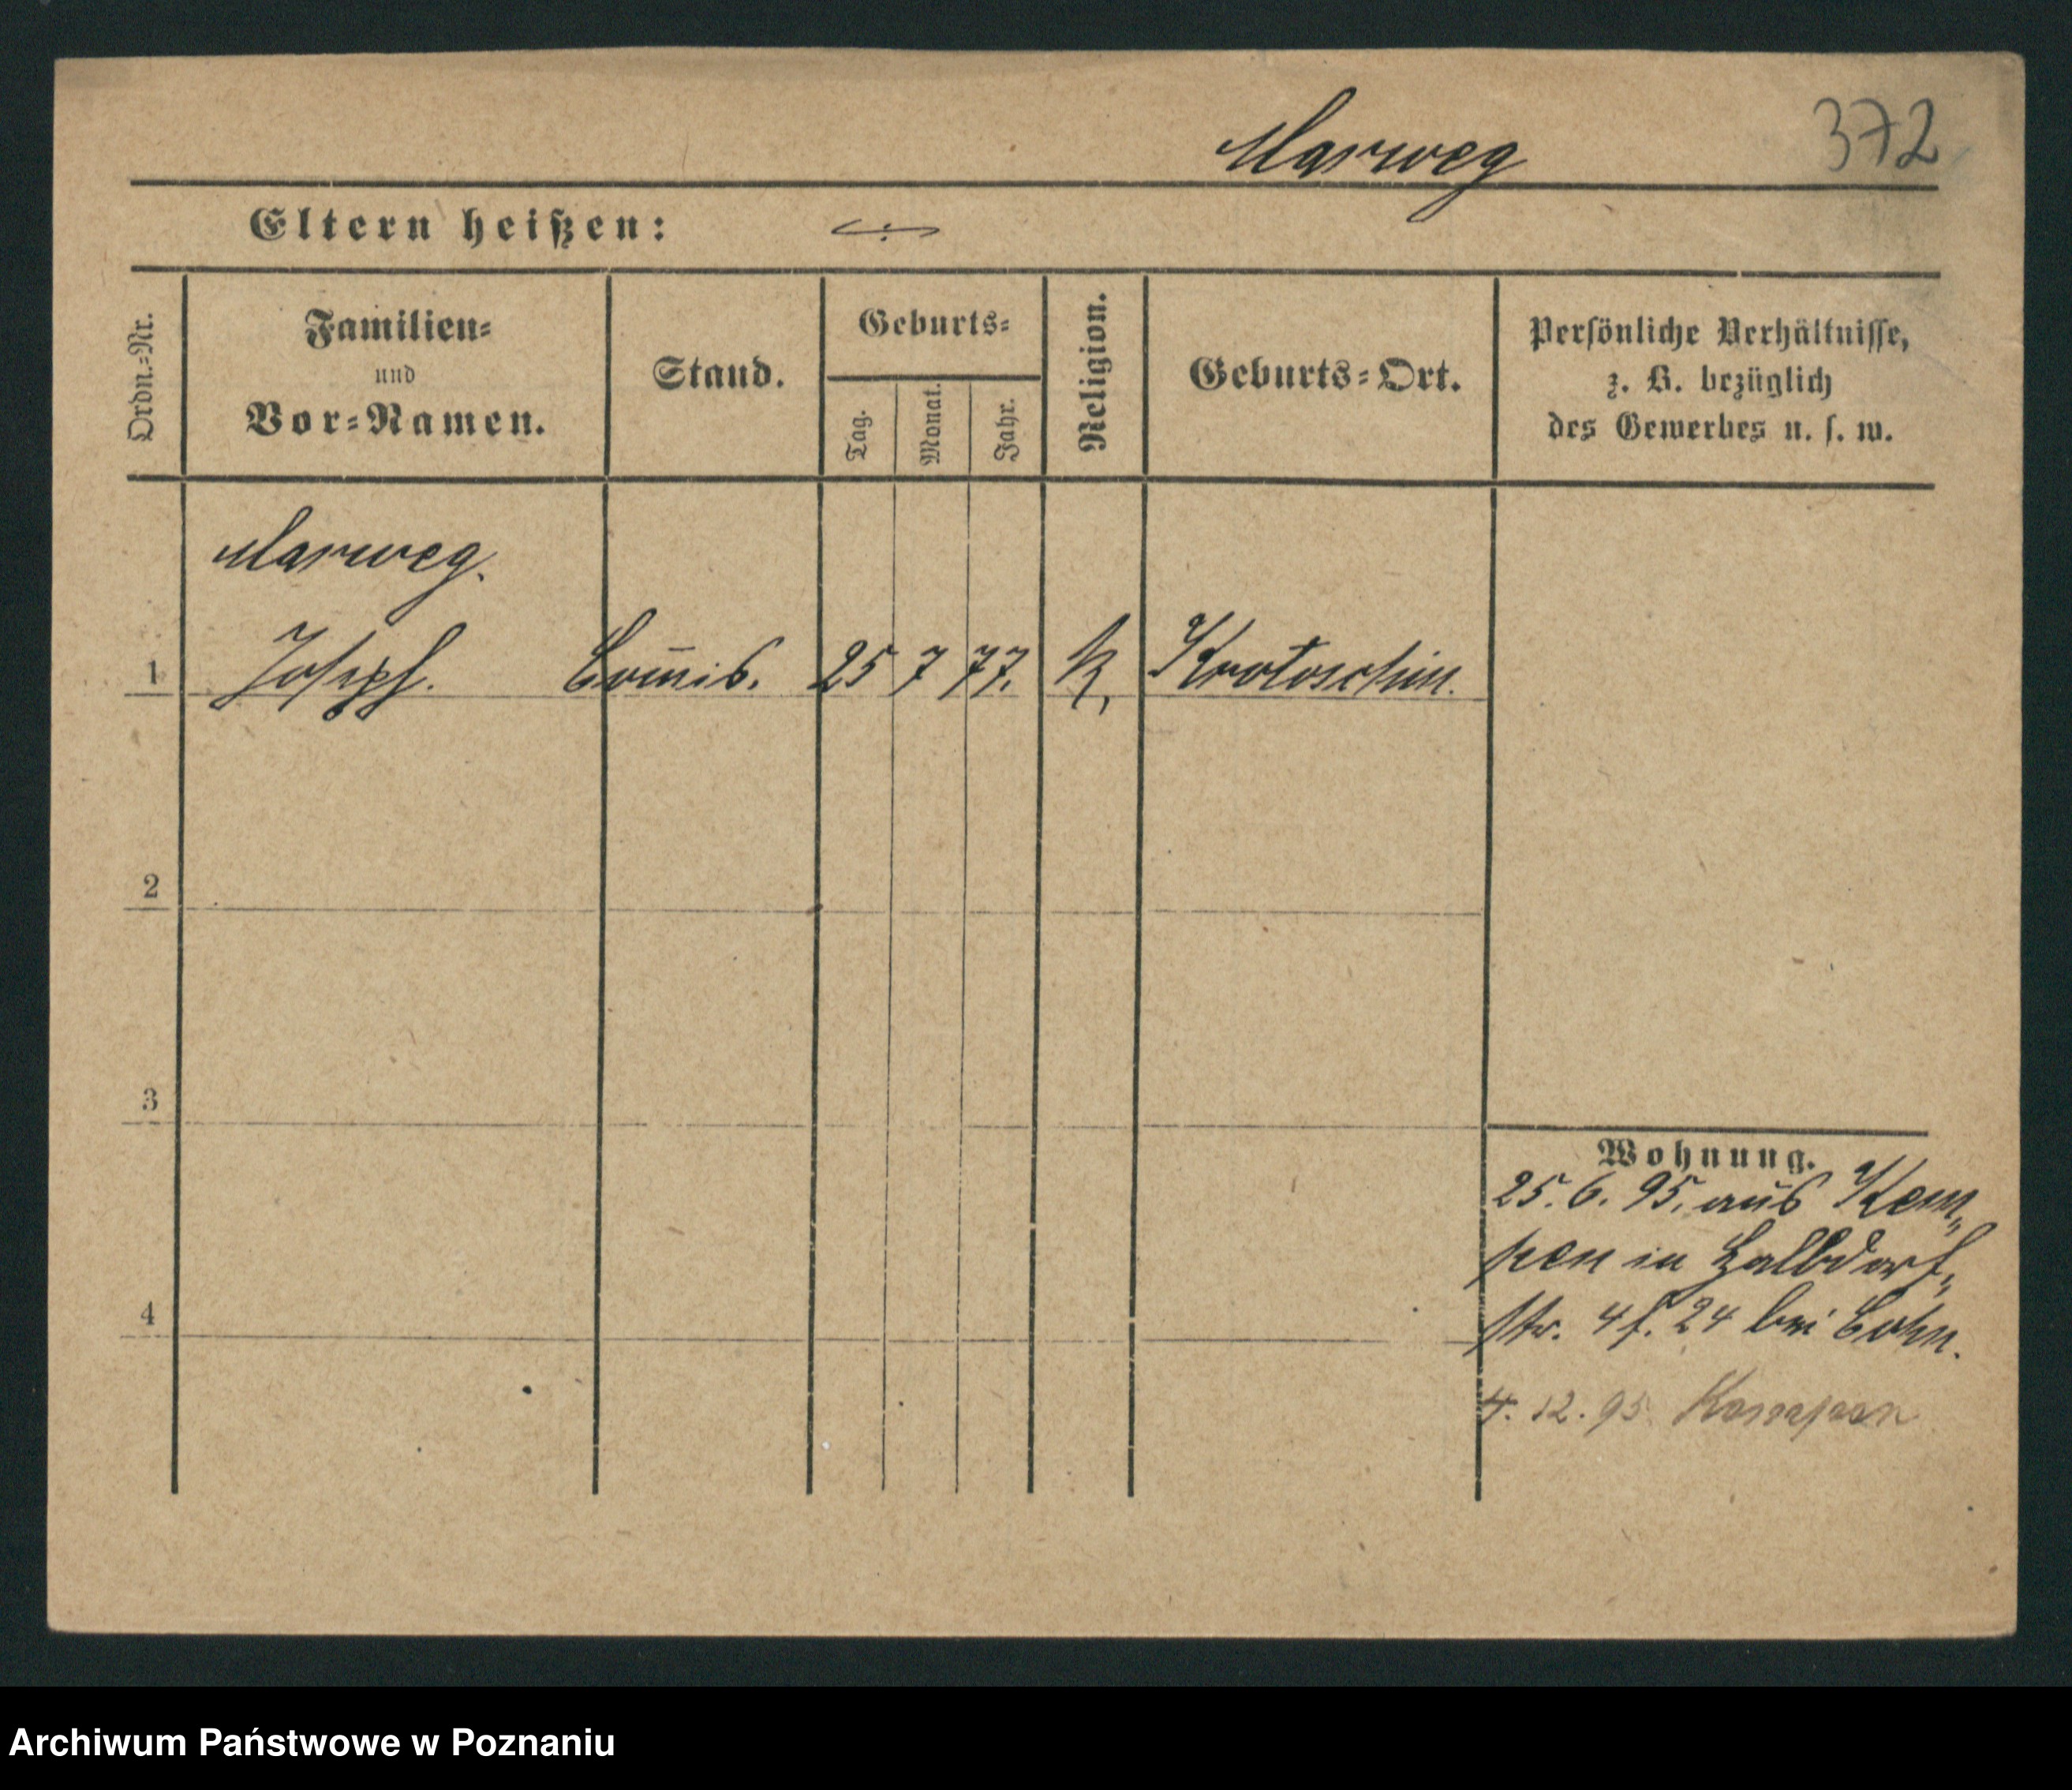 Marweg
372
Eltern heißen:
Ordn.-Nr.
Familien-
und
Vor-Namen.
Stand.
Geburts-
Tag.
Monat.
Jahr.
Religion.
Geburts-Ort.
Persönliche Verhältnisse,
z. B. bezüglich
des Gewerbes u. s. w.
Marweg.
1 Joseph. Com̅is. 25 7 77. k. Krotoschin.
2
3
4
Wohnung.
25. 6. 95. aus Kem„
pen in Halbdorf„
str. 4 f. 24 bei Cohn.
4. 12. 95
Archiwum Państwowe w Poznaniu